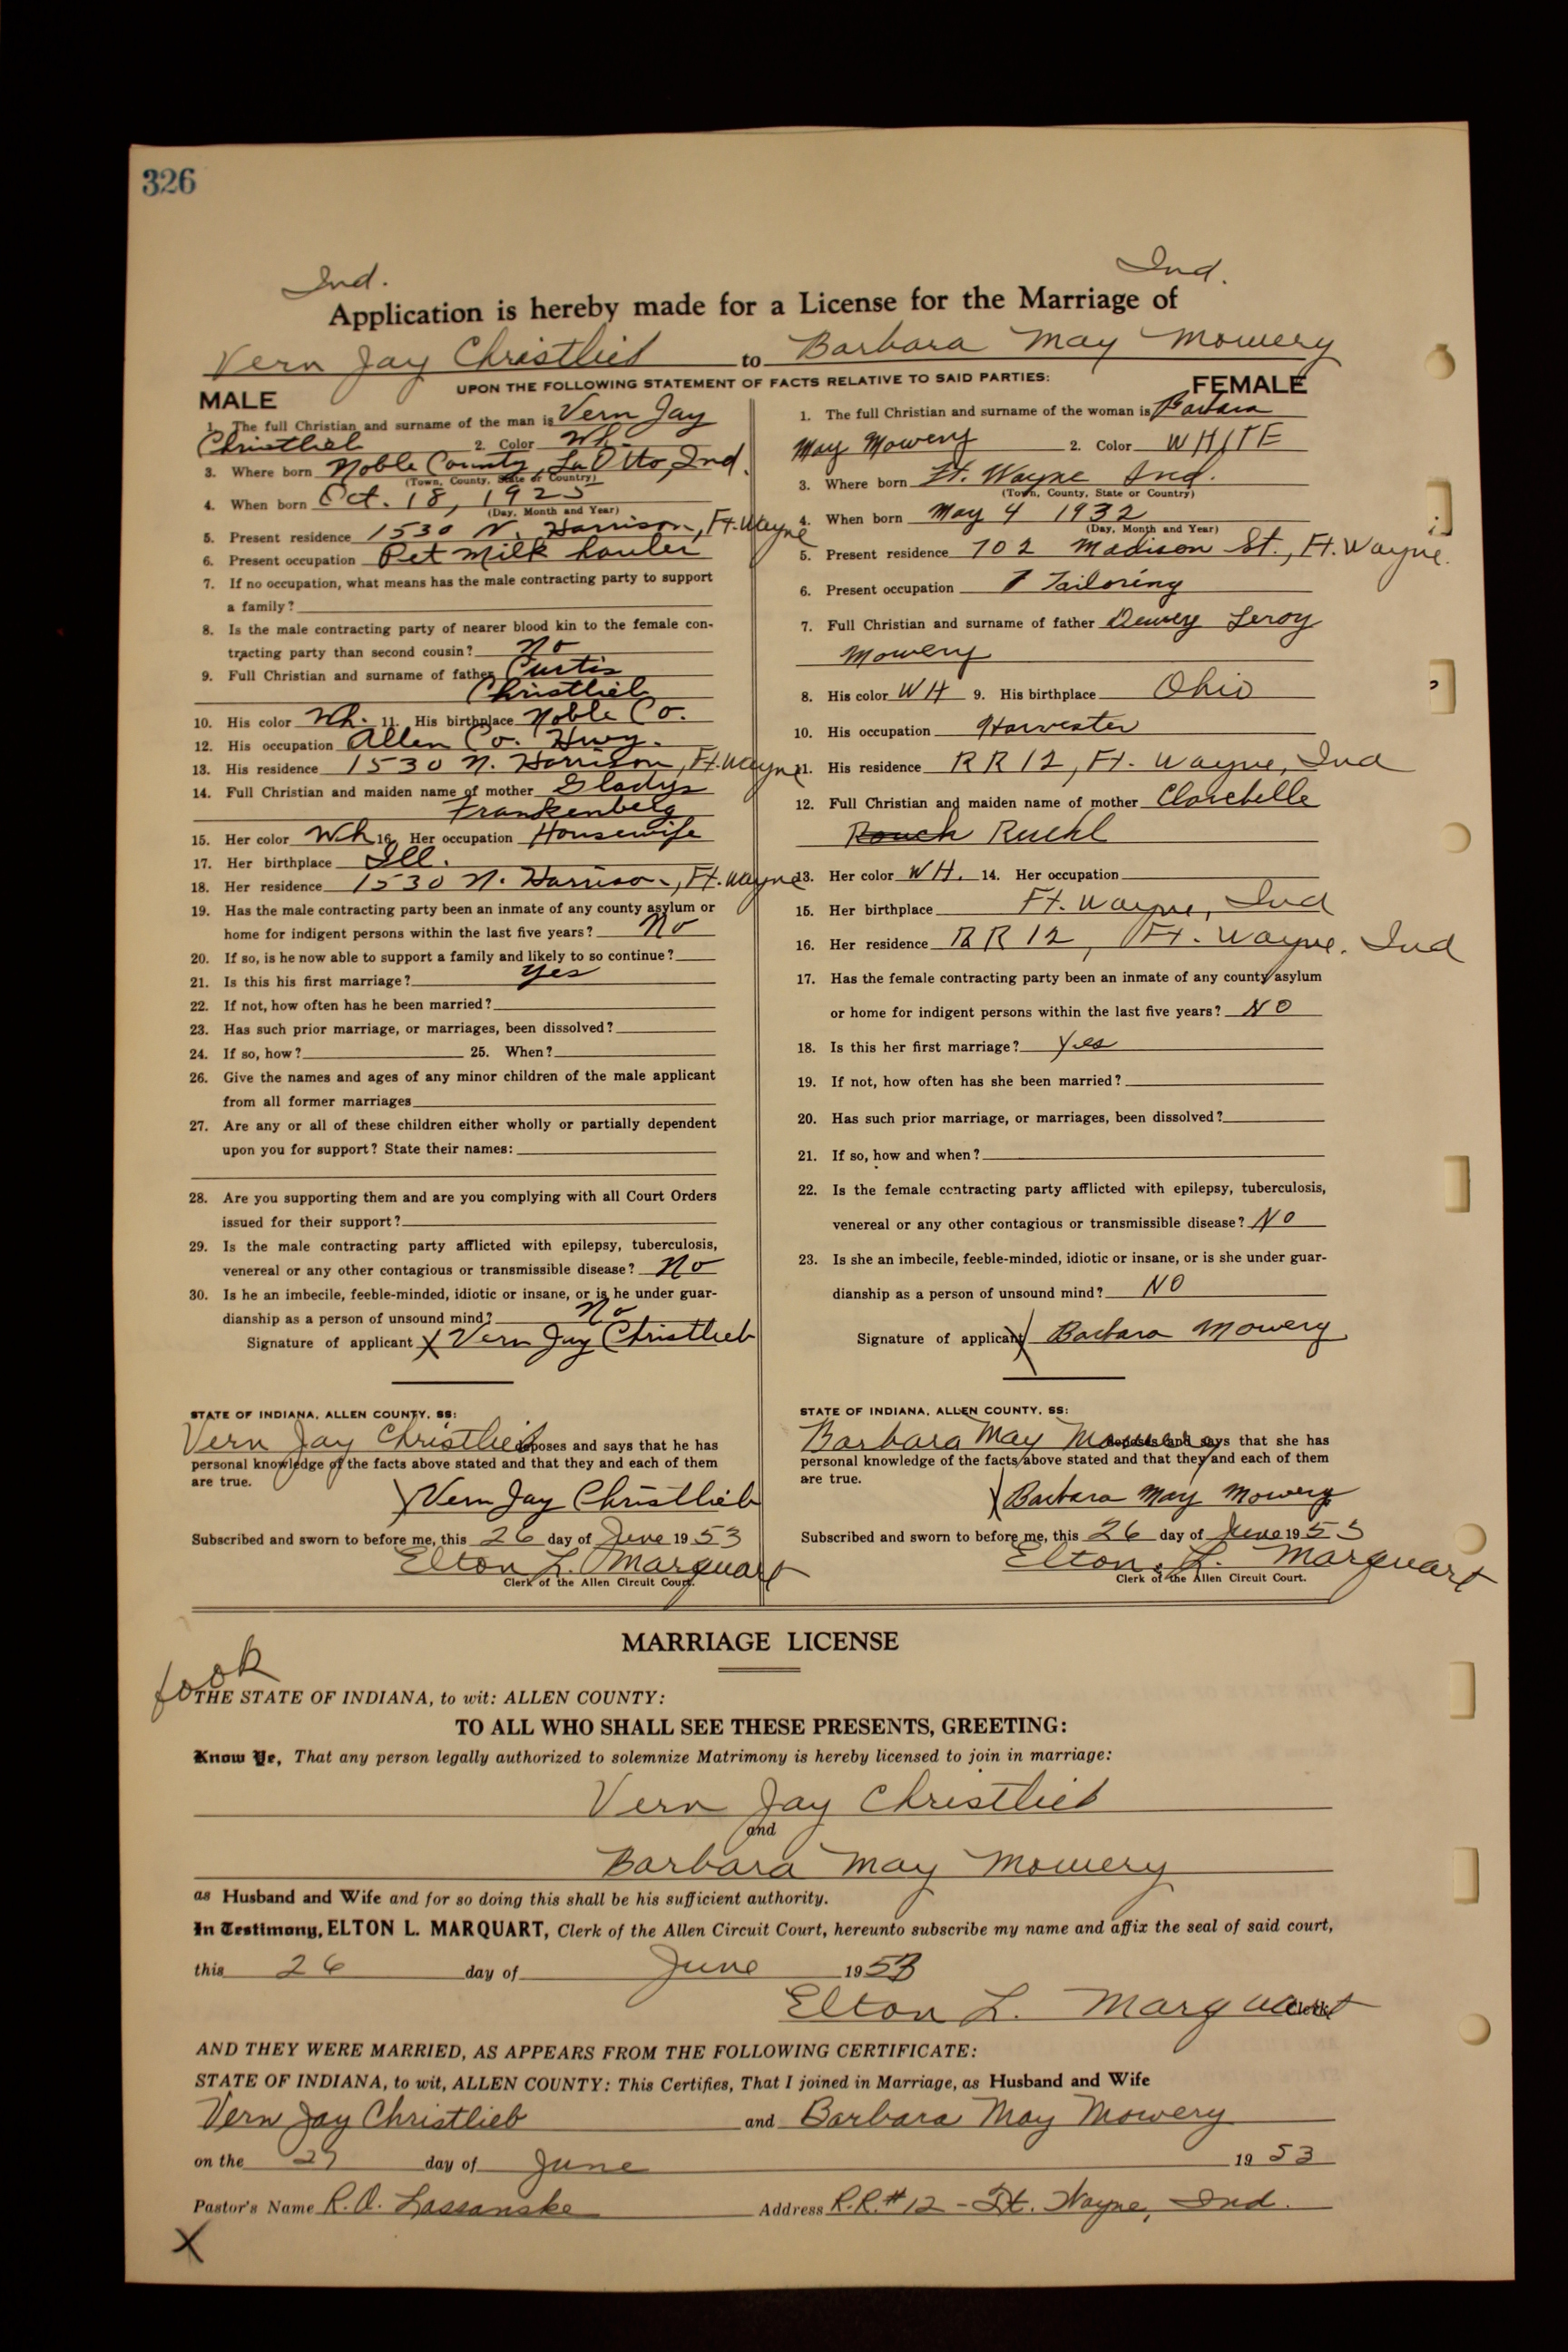 326
Ind. Ind.
Application is hereby made for a License for the Marriage of
Vern Jay Christlieb to Barbara May Mowery
UPON THE FOLLOWING STATEMENT OF FACTS RELATIVE TO SAID PARTIES:
MALE
1. The full Christian and surname of the man is Vern Jay
Christlieb 2. Color Wh.
3. Where born Noble County, LaOtto, Ind.
(Town, County, State or Country)
4. When born Oct. 18, 1925
(Day, Month and Year)
5. Present residence 1530 N. Harrison, Ft. Wayne
6. Present occupation Pet Milk hauler
7. If no occupation, what means has the male contracting party to support
a family?
8. Is the male contracting party of nearer blood kin to the female con-
tracting party than second cousin? No
9. Full Christian and surname of father Curtis
Christlieb
10. His color Wh. 11. His birthplace Noble Co.
12. His occupation Allen Co. Hwy.
13. His residence 1530 N. Harrison, Ft. Wayne
14. Full Christian and maiden name of mother Gladys
Frankenberg
15. Her color Wh 16. Her occupation Housewife
17. Her birthplace Ill.
18. Her residence 1530 N. Harrison, Ft. Wayne
19. Has the male contracting party been an inmate of any county asylum or
home for indigent persons within the last five years? No
20. If so, is he now able to support a family and likely to so continue?
21. Is this his first marriage? Yes
22. If not, how often has he been married?
23. Has such prior marriage, or marriages, been dissolved?
24. If so, how? 25. When?
26. Give the names and ages of any minor children of the male applicant
from all former marriages
27. Are any or all of these children either wholly or partially dependent
upon you for support? State their names:
28. Are you supporting them and are you complying with all Court Orders
issued for their support?
29. Is the male contracting party afflicted with epilepsy, tuberculosis,
venereal or any other contagious or transmissible disease? No
30. Is he an imbecile, feeble-minded, idiotic or insane, or is he under guar-
dianship as a person of unsound mind? No
Signature of applicant X Vern Jay Christlieb
STATE OF INDIANA, ALLEN COUNTY, SS:
Vern Jay Christlieb deposes and says that he has
personal knowledge of the facts above stated and that they and each of them
are true.
X Vern Jay Christlieb
Subscribed and sworn to before me, this 26 day of June 1953
Elton L. Marquart
Clerk of the Allen Circuit Court.
FEMALE
1. The full Christian and surname of the woman is Barbara
May Mowery 2. Color WHITE
3. Where born Ft. Wayne Ind.
(Town, County, State or Country)
4. When born May 4 1932
(Day, Month and Year)
5. Present residence 702 Madison St., Ft. Wayne.
6. Present occupation Tailoring
7. Full Christian and surname of father Dewey Leroy
Mowery
8. His color WH 9. His birthplace Ohio
10. His occupation Harvester
11. His residence RR 12, Ft. Wayne, Ind
12. Full Christian and maiden name of mother Clarebelle
Rouch Ruehl
13. Her color WH. 14. Her occupation
15. Her birthplace Ft. Wayne, Ind
16. Her residence RR 12, Ft. Wayne. Ind
17. Has the female contracting party been an inmate of any county asylum
or home for indigent persons within the last five years? NO
18. Is this her first marriage? Yes
19. If not, how often has she been married?
20. Has such prior marriage, or marriages, been dissolved?
21. If so, how and when?
22. Is the female contracting party afflicted with epilepsy, tuberculosis,
venereal or any other contagious or transmissible disease? No
23. Is she an imbecile, feeble-minded, idiotic or insane, or is she under guar-
dianship as a person of unsound mind? NO
Signature of applicant X Barbara Mowery
STATE OF INDIANA, ALLEN COUNTY, SS:
Barbara May Mowery deposes and says that she has
personal knowledge of the facts above stated and that they and each of them
are true.
X Barbara May Mowery
Subscribed and sworn to before me, this 26 day of June 1953
Elton L. Marquart
Clerk of the Allen Circuit Court.
MARRIAGE LICENSE
THE STATE OF INDIANA, to wit: ALLEN COUNTY:
TO ALL WHO SHALL SEE THESE PRESENTS, GREETING:
Know Ye, That any person legally authorized to solemnize Matrimony is hereby licensed to join in marriage:
Vern Jay Christlieb
and
Barbara May Mowery
as Husband and Wife and for so doing this shall be his sufficient authority.
In Testimony, ELTON L. MARQUART, Clerk of the Allen Circuit Court, hereunto subscribe my name and affix the seal of said court,
this 26 day of June 1953
Elton L. Marquart Clerk
AND THEY WERE MARRIED, AS APPEARS FROM THE FOLLOWING CERTIFICATE:
STATE OF INDIANA, to wit, ALLEN COUNTY: This Certifies, That I joined in Marriage, as Husband and Wife
Vern Jay Christlieb and Barbara May Mowery
on the 27 day of June 1953
Pastor's Name R. O. Lassanske Address R.R. #12 - Ft. Wayne, Ind.
X